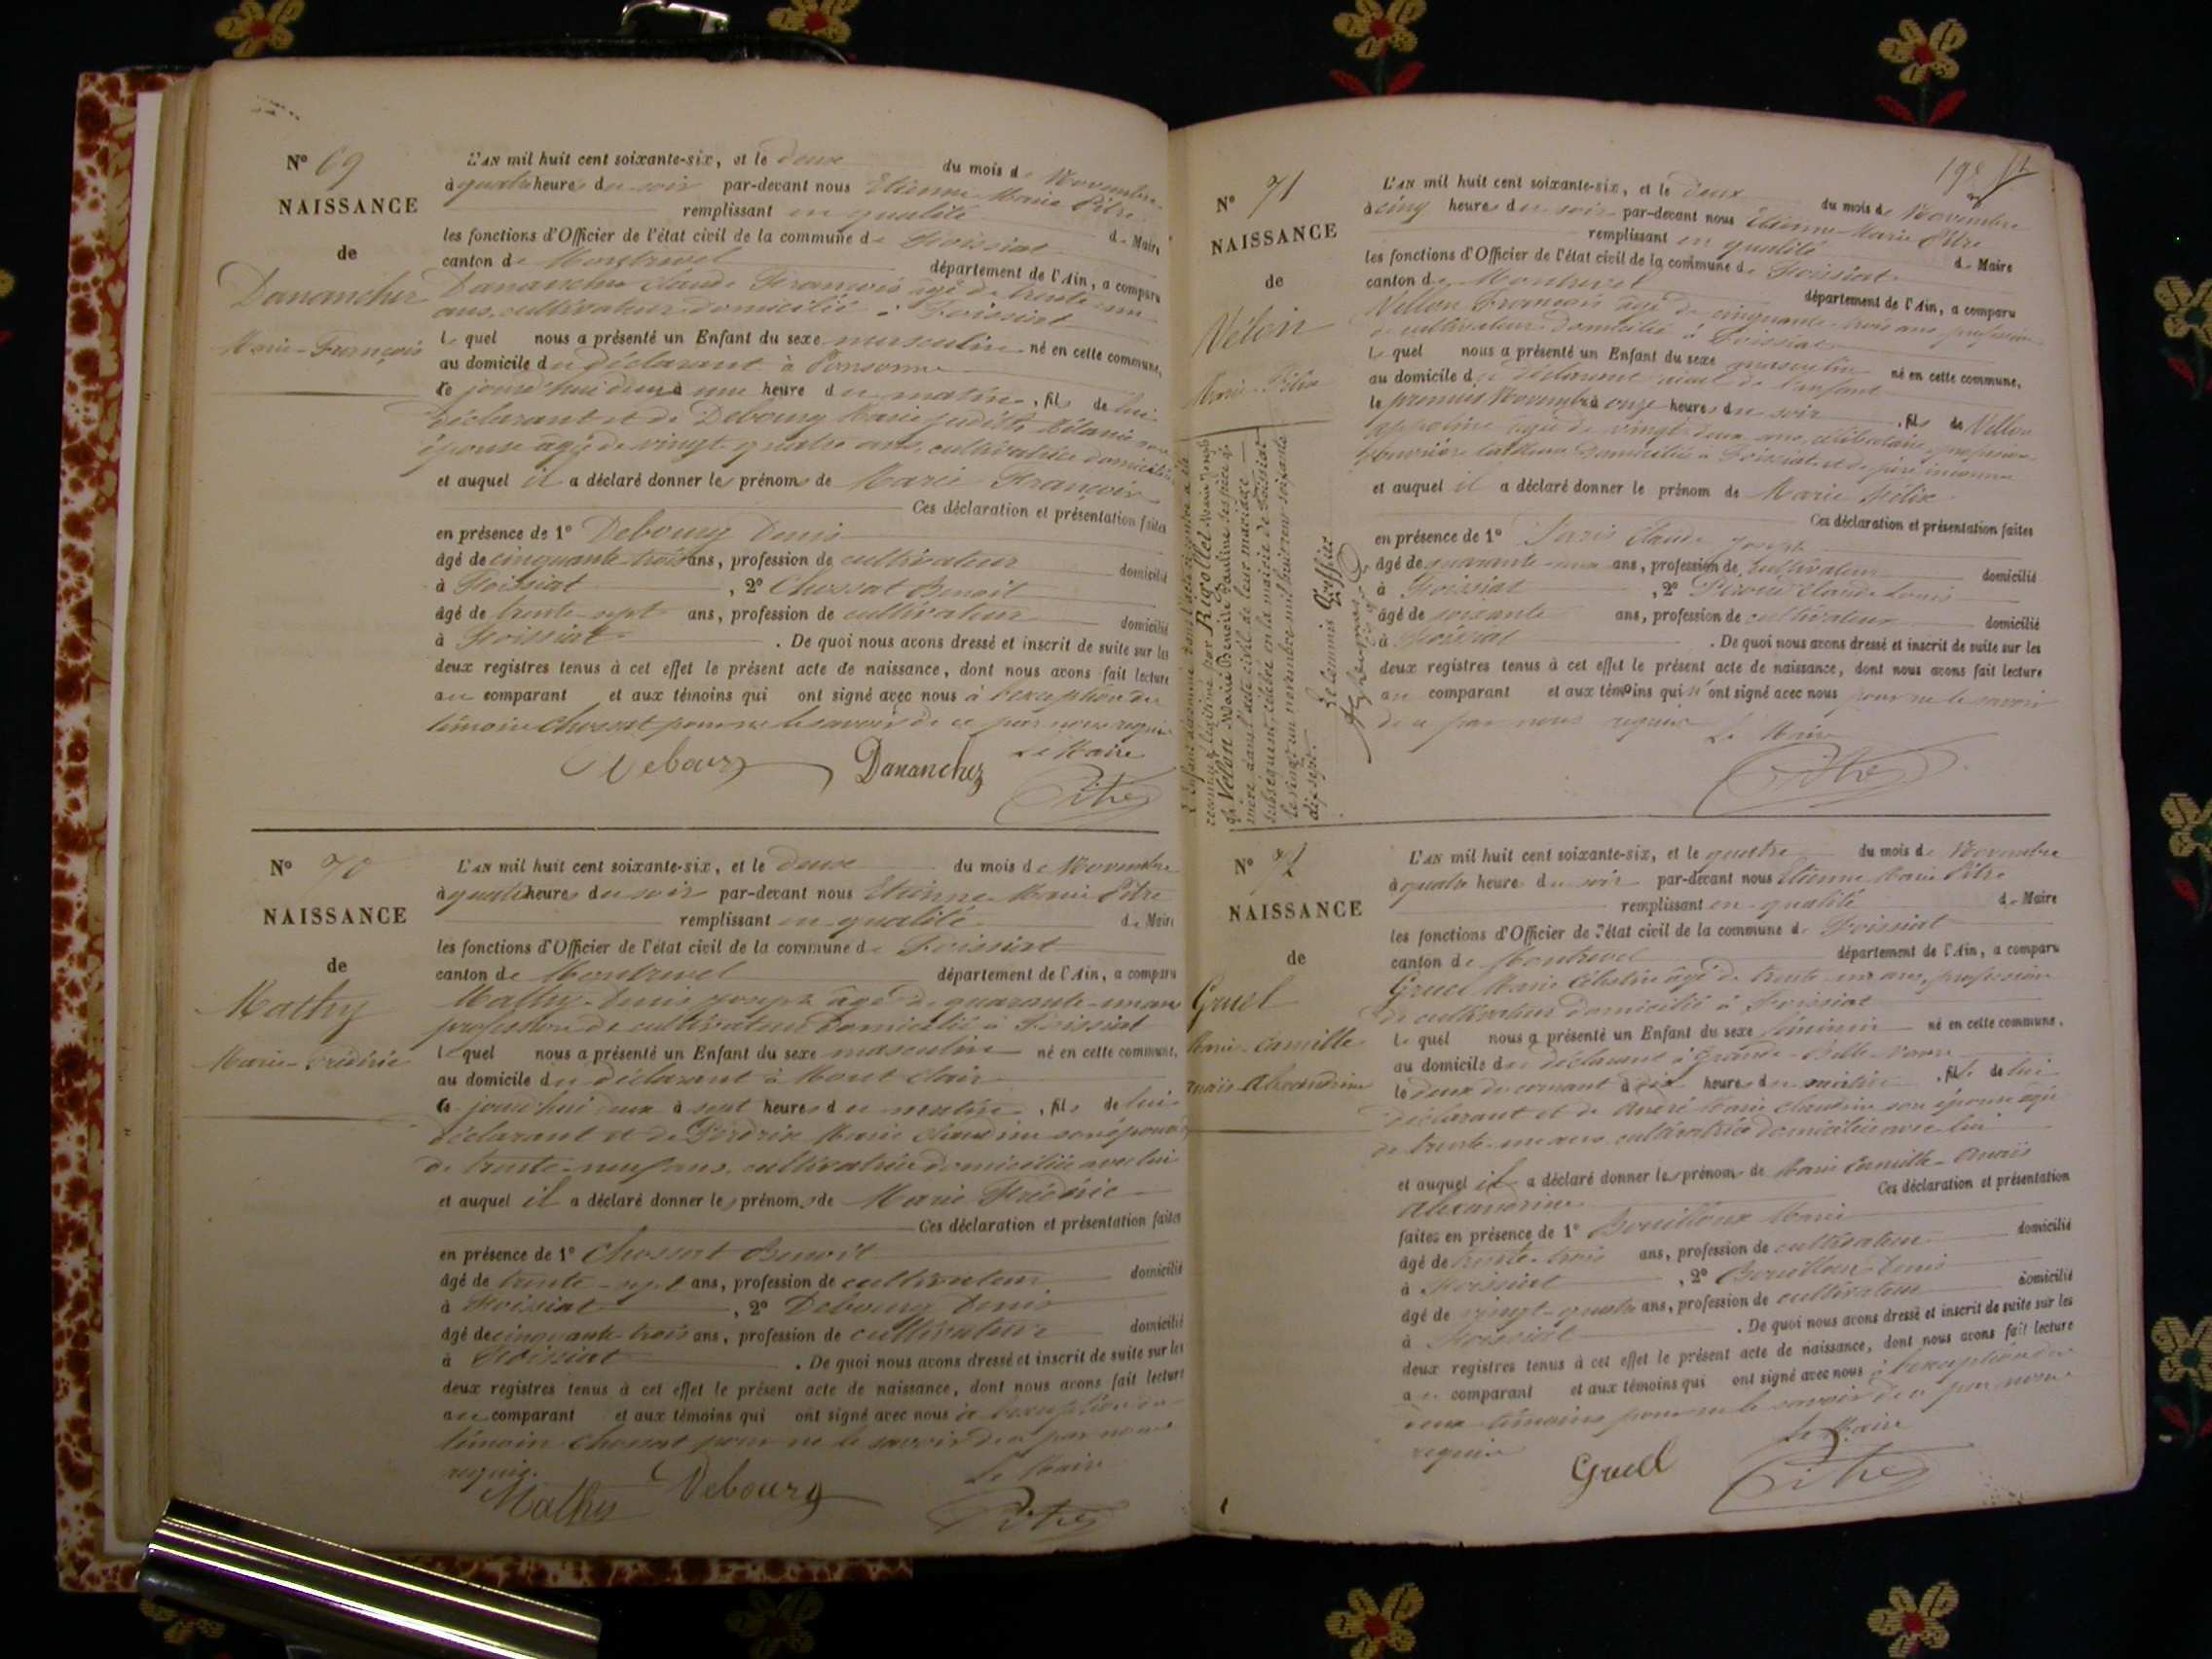 N° 69
NAISSANCE
de
Dananchez
Marie-François
L'AN mil huit cent soixante-six, et le deux du mois de Novembre
à quatre heures du soir par-devant nous Etienne Marie Pitre
remplissant en qualité de Maire
les fonctions d'Officier de l'état civil de la commune de Foissiat
canton de Montrevel département de l'Ain, a comparu
Dananchez Claude François âgé de trente-un
ans, cultivateur domicilié à Foissiat
lequel nous a présenté un Enfant du sexe masculin né en cette commune,
au domicile du déclarant à
ce jourd'hui deux à une heure du matin, fils de lui
déclarant et de Debourg Marie Judith Mélanie son
épouse âgée de vingt-quatre ans, cultivatrice domiciliée
et auquel il a déclaré donner les prénoms de Marie François
Ces déclaration et présentation faites
en présence de 1° Debourg Denis
âgé de cinquante-trois ans, profession de cultivateur domicilié
à Foissiat, 2° Chossat Benoit
âgé de trente-sept ans, profession de cultivateur domicilié
à Foissiat. De quoi nous avons dressé et inscrit de suite sur les
deux registres tenus à cet effet le présent acte de naissance, dont nous avons fait lecture
au comparant et aux témoins qui ont signé avec nous à l'exception du
témoin Chossat pour ne le savoir de ce par nous requis
Le Maire
Debourg Dananchez Pitre
N° 70
NAISSANCE
de
Mathy
Marie-Frédéric
L'AN mil huit cent soixante-six, et le deux du mois de Novembre
à quatre heures du soir par-devant nous Etienne Marie Pitre
remplissant en qualité de Maire
les fonctions d'Officier de l'état civil de la commune de Foissiat
canton de Montrevel département de l'Ain, a comparu
Mathy Denis Joseph âgé de quarante-un ans
profession de cultivateur domicilié à Foissiat
lequel nous a présenté un Enfant du sexe masculin né en cette commune,
au domicile du déclarant à Mont clair
ce jourd'hui deux à sept heures du matin, fils de lui
déclarant et de Perdrix Marie Claudine son épouse
de trente-neuf ans, cultivatrice domiciliée avec lui
et auquel il a déclaré donner les prénoms de Marie Frédéric
Ces déclaration et présentation faites
en présence de 1° Chossat Benoit
âgé de trente-sept ans, profession de cultivateur domicilié
à Foissiat, 2° Debourg Denis
âgé de cinquante-trois ans, profession de cultivateur domicilié
à Foissiat. De quoi nous avons dressé et inscrit de suite sur les
deux registres tenus à cet effet le présent acte de naissance, dont nous avons fait lecture
au comparant et aux témoins qui ont signé avec nous à l'exception du
témoin Chossat pour ne le savoir de ce par nous
requis.
Le Maire
Mathy Debourg Pitre
N° 71
NAISSANCE
de
Vélon
Marie-Félix
L'AN mil huit cent soixante-six, et le deux du mois de Novembre
à cinq heures du soir par-devant nous Etienne Marie Pitre
remplissant en qualité de Maire
les fonctions d'Officier de l'état civil de la commune de Foissiat
canton de Montrevel département de l'Ain, a comparu
Vellon François âgé de cinquante-trois ans, profession
de cultivateur domicilié à Foissiat
lequel nous a présenté un Enfant du sexe masculin né en cette commune,
au domicile du déclarant aïeul de l'enfant
le premier Novembre à onze heures du soir, fils de Vellon
âgée de vingt-deux ans, célibataire, profession
domiciliée à Foissiat et de père inconnu
et auquel il a déclaré donner le prénom de Marie Félix
Ces déclaration et présentation faites
en présence de 1° Claude Joseph
âgé de quarante-un ans, profession de cultivateur domicilié
à Foissiat, 2° Claude Louis
âgé de soixante ans, profession de cultivateur domicilié
à Foissiat. De quoi nous avons dressé et inscrit de suite sur les
deux registres tenus à cet effet le présent acte de naissance, dont nous avons fait lecture
au comparant et aux témoins qui n'ont signé avec nous pour ne le savoir
de ce par nous requis
Le Maire
Pitre
L'Enfant dénommé dans l'acte ci-contre a été
reconnu et légitimé par Rigollet Marie Joseph
et Vellon Marie Benoite Pauline ses père et
mère dans l'acte civil de leur mariage
subséquent, célébré en la mairie de Foissiat
le vingt un novembre mil huit cent soixante
dix-sept.
Le commis Greffier
N° 72
NAISSANCE
de
Gruel
Marie-Camille
Anaïs-Alexandrine
L'AN mil huit cent soixante-six, et le quatre du mois de Novembre
à quatre heures du soir par-devant nous Etienne Marie Pitre
remplissant en qualité de Maire
les fonctions d'Officier de l'état civil de la commune de Foissiat
canton de Montrevel département de l'Ain, a comparu
Gruel Marie Célestin âgé de trente-un ans, profession
de cultivateur domicilié à Foissiat
lequel nous a présenté un Enfant du sexe féminin né en cette commune,
au domicile du déclarant à Grande-Belle-
le deux du courant à dix heures du matin, fille de lui
déclarant et de André Marie Claudine son épouse âgée
de trente-un ans cultivatrice domiciliée avec lui
et auquel il a déclaré donner les prénoms de Marie Camille-Anaïs
Alexandrine Ces déclaration et présentation
faites en présence de 1° Bouilloux Marie
âgé de trente-trois ans, profession de cultivateur domicilié
à Foissiat, 2° Bouilloux Denis
âgé de vingt-quatre ans, profession de cultivateur domicilié
à Foissiat. De quoi nous avons dressé et inscrit de suite sur les
deux registres tenus à cet effet le présent acte de naissance, dont nous avons fait lecture
au comparant et aux témoins qui ont signé avec nous à l'exception des
deux témoins pour ne le savoir de ce par nous
requis
Le Maire
Gruel Pitre